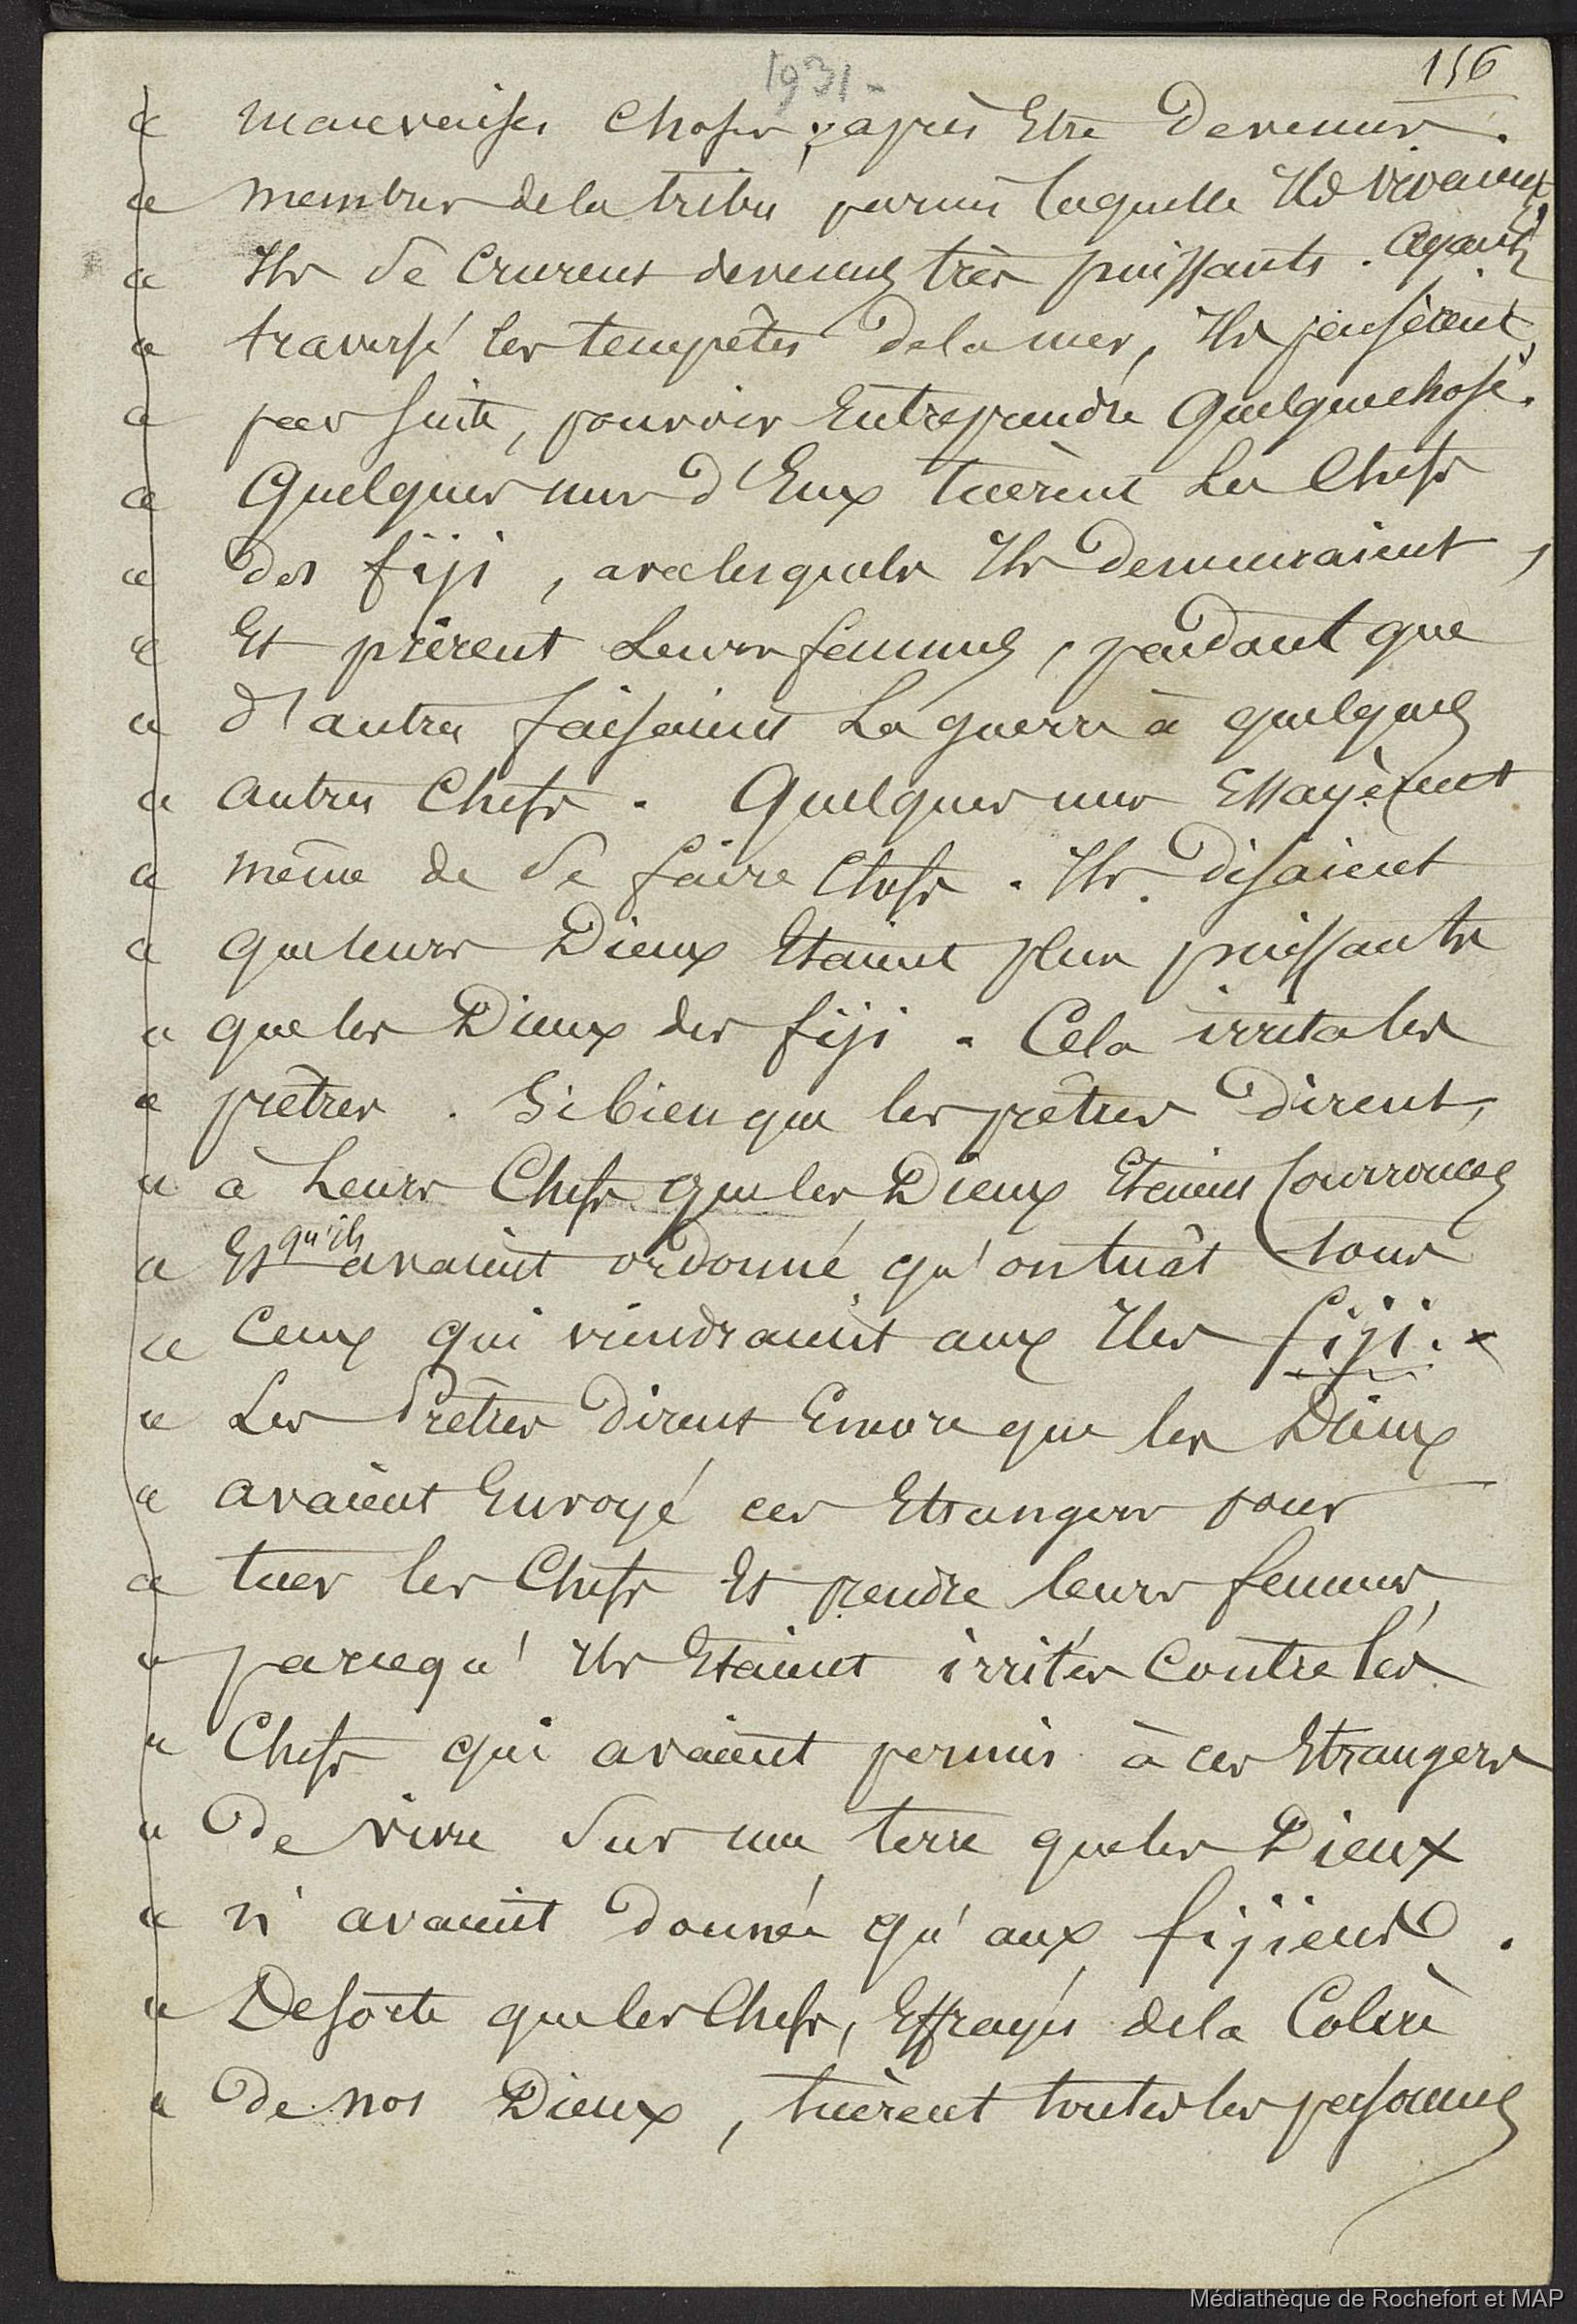 1931 -
156
« mauvaises choses ; après Etre Devenus
« membres dela tribu parmi laquelle Ils vivaient,
« Ils se Crurent devenus très puissants . Ayant
« traversé les tempêtes dela mer, Ils pensèrent,
« par suite, pouvoir Entreprendre Quelquechose.
« Quelques uns d'Eux tuèrent Les Chefs
« des fiji, avec lesquels Ils Demeuraient,
« Et prirent Leurs femmes, pendant que
« d'autres faisaient La guerre à quelques
« autres Chefs . Quelques uns Essayèrent
« même de se faire Chefs . Ils Disaient
« que leurs Dieux Etaient plus puissants
« que les Dieux des fiji . Cela irrita les
« prêtres . Si bien que les prêtres Dirent,
« à Leurs Chefs que les Dieux Etaient Courroucés
« Et qu'ils avaient ordonné qu'on tuât tous
« Ceux qui viendraient aux Iles fiji. x
« Les Prêtres Dirent Encore que les Dieux
« avaient Envoyé ces Etrangers pour
« tuer les Chefs Et prendre leurs femmes,
« parcequ'Ils Etaient irrités Contre les
« Chefs qui avaient permis à ces Etrangers
« De vivre sur une terre que les Dieux
« n'avaient Donnée qu'aux fijiens .
« Desorte que les Chefs, Effrayés dela Colère
« De nos Dieux, tuèrent toutes les personnes
Médiathèque de Rochefort et MAP